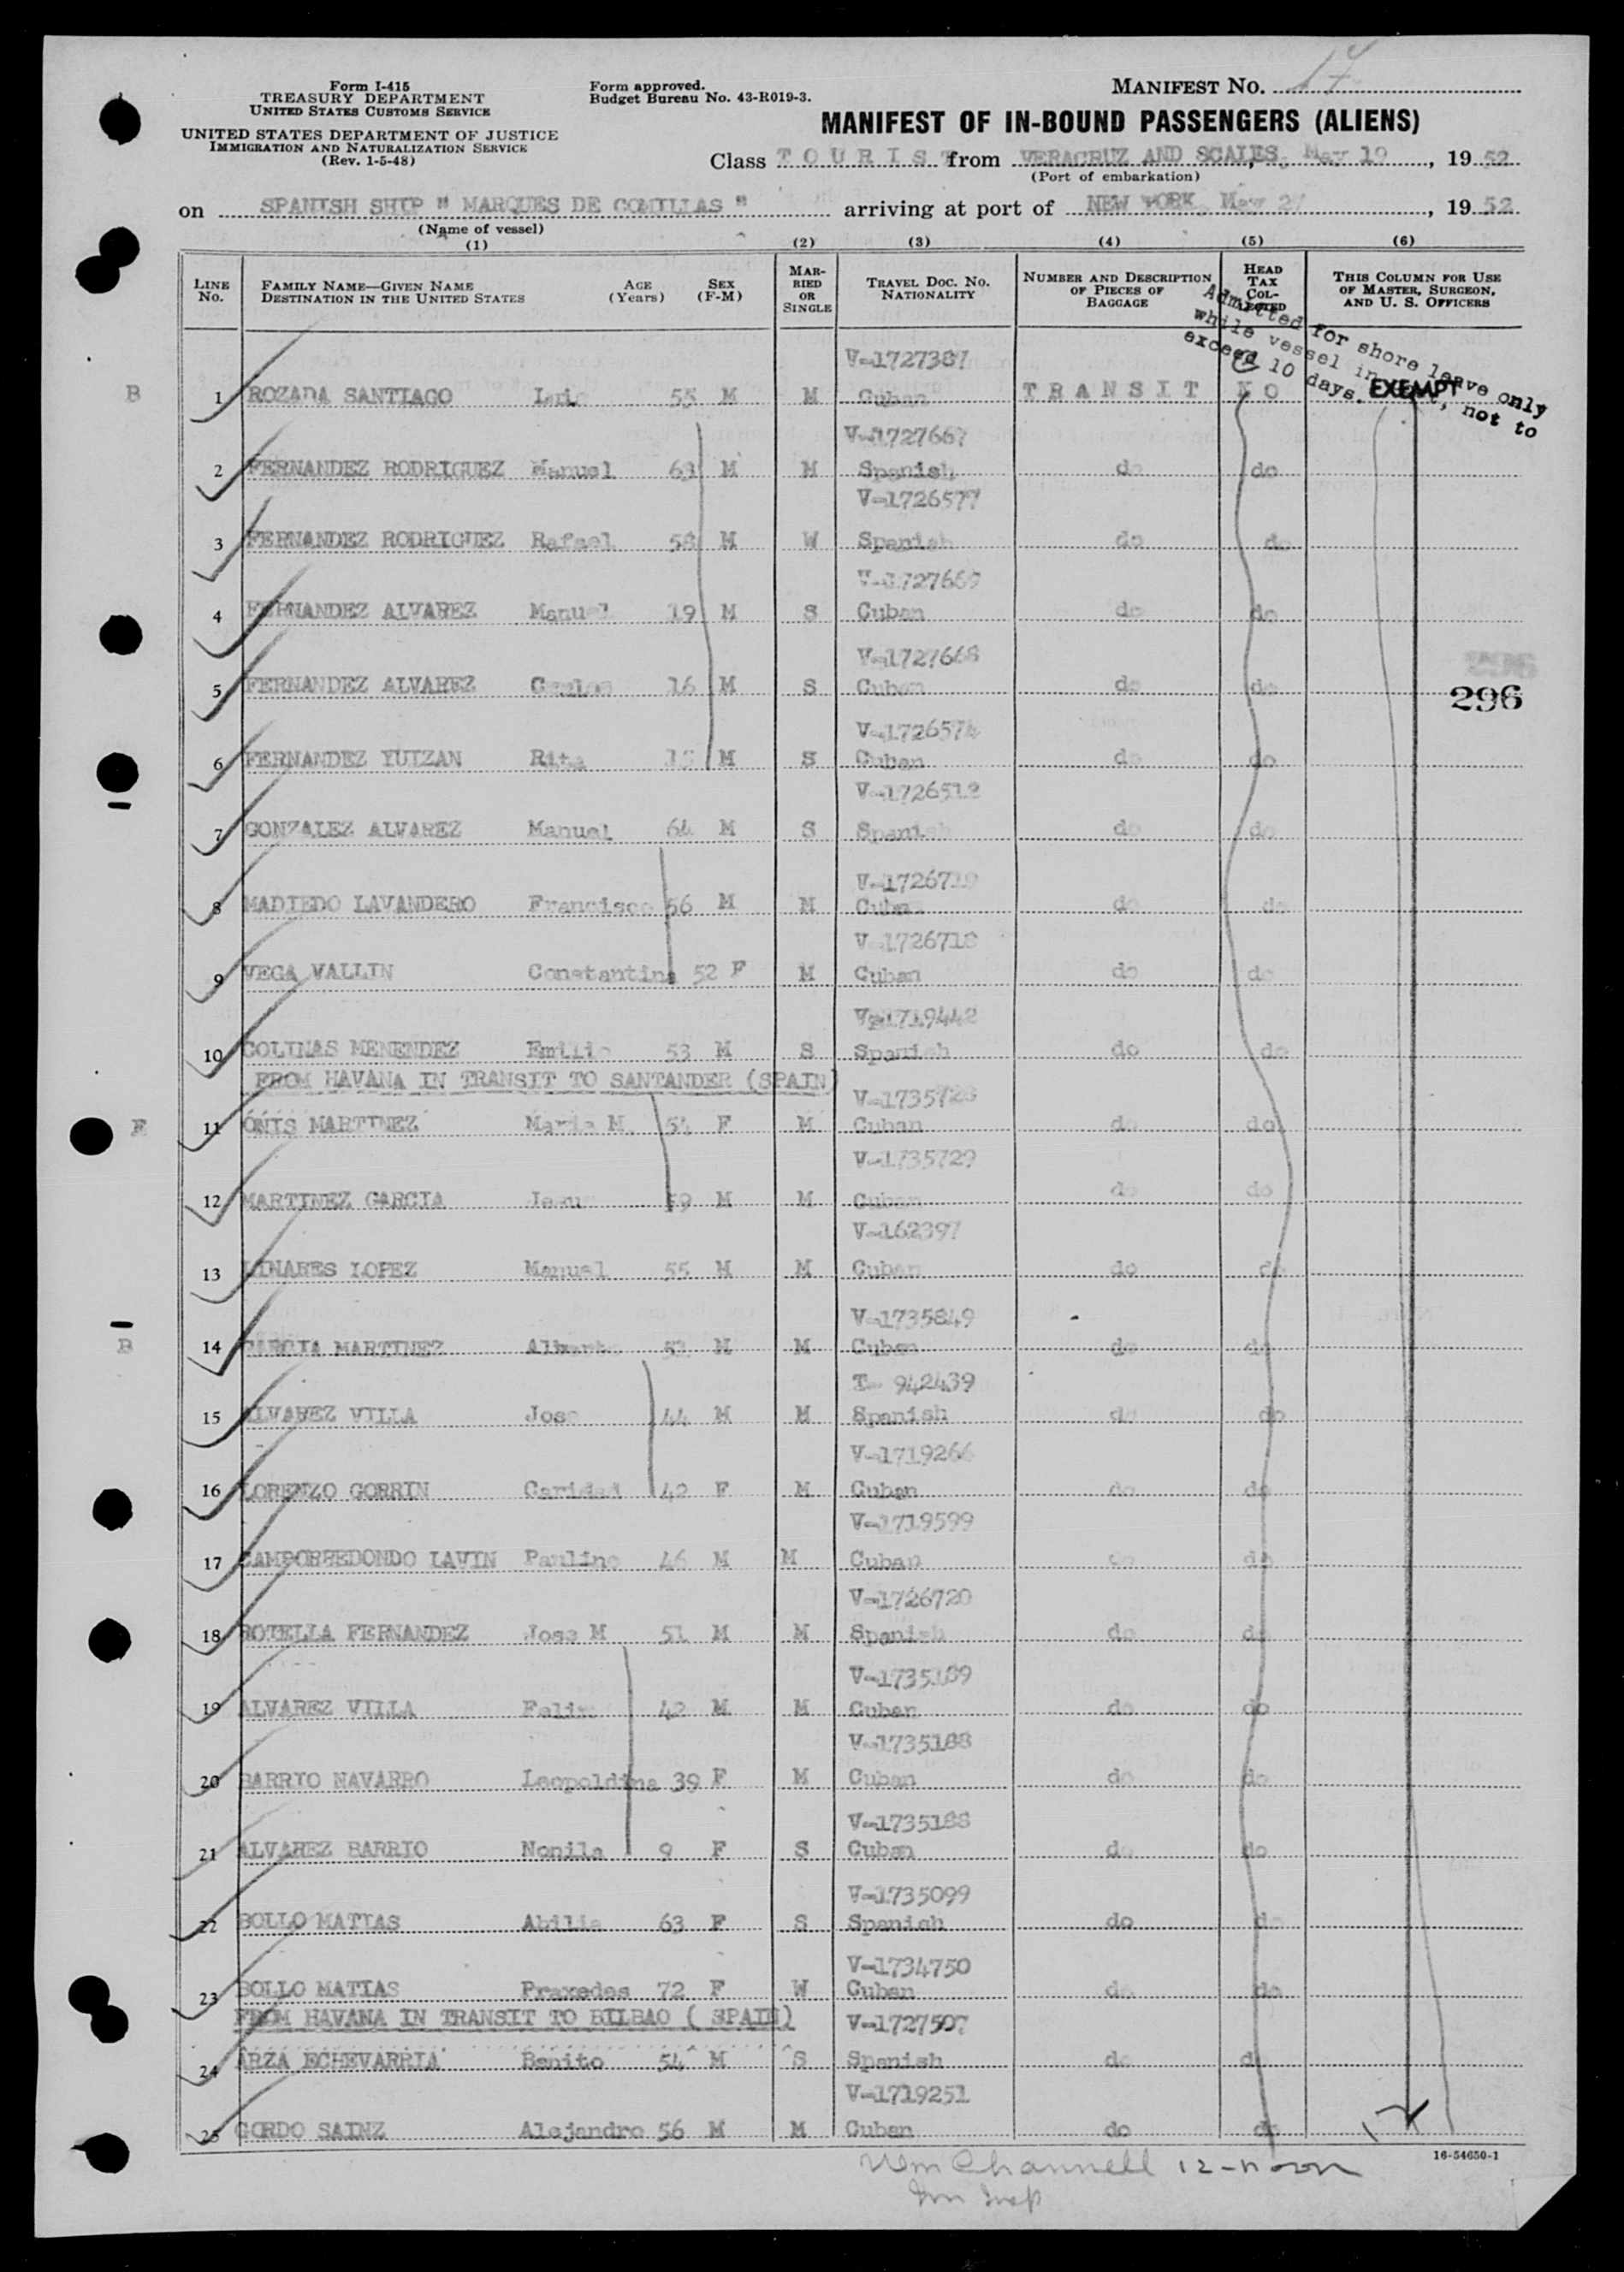 Form I-415
TREASURY DEPARTMENT
UNITED STATES CUSTOMS SERVICE
UNITED STATES DEPARTMENT OF JUSTICE
IMMIGRATION AND NATURALIZATION SERVICE
(Rev. 1-5-48)
Form approved.
Budget Bureau No. 43-R019-3.
MANIFEST No. 17
MANIFEST OF IN-BOUND PASSENGERS (ALIENS)
Class TOURIST from VERACRUZ AND SCALES, May 19, 1952
(Port of embarkation)
on SPANISH SHIP " MARQUES DE COMILLAS " arriving at port of NEW YORK, May 27, 1952
(Name of vessel)
(1) (2) (3) (4) (5) (6)
LINE No. FAMILY NAME—GIVEN NAME DESTINATION IN THE UNITED STATES AGE (Years) SEX (F-M) MARRIED OR SINGLE TRAVEL DOC. NO. NATIONALITY NUMBER AND DESCRIPTION OF PIECES OF BAGGAGE HEAD TAX COLLECTED THIS COLUMN FOR USE OF MASTER, SURGEON, AND U. S. OFFICERS
Admitted for shore leave only
while vessel in port, not to
exceed 10 days.
EXEMPT
V-1727387
B 1 ROZADA SANTIAGO 55 M M Cuban TRANSIT NO
V-1727667
2 FERNANDEZ RODRIGUEZ Manuel 63 M M Spanish do do
V-1726577
3 FERNANDEZ RODRIGUEZ Rafael 58 M W Spanish do do
V-1727669
4 FERNANDEZ ALVAREZ Manuel 19 M S Cuban do do
V-1727668
5 FERNANDEZ ALVAREZ Carlos 16 M S Cuban do do
296
V-1726574
6 FERNANDEZ YUIZAN Rita M S Cuban do do
V-1726512
7 GONZALEZ ALVAREZ Manuel 64 M S Spanish do do
V-1726719
8 MADIEDO LAVANDERO Francisco 56 M M Cuban do do
V-1726718
9 VEGA VALLIN Constantina 52 F M Cuban do do
V-1719442
10 COLINAS MENENDEZ Emilio 53 M S Spanish do do
FROM HAVANA IN TRANSIT TO SANTANDER (SPAIN)
V-1735728
11 ONIS MARTINEZ Maria M. 54 F M Cuban do do
V-1735729
12 MARTINEZ GARCIA Jesus 59 M M Cuban do do
V-162397
13 LINARES LOPEZ Manuel 55 M M Cuban do do
V-1735849
B 14 GARCIA MARTINEZ Alberto 52 M M Cuban do do
T- 942439
15 ALVAREZ VILLA Jose 44 M M Spanish do do
V-1719266
16 LORENZO GORRIN Caridad 42 F M Cuban do do
V-1719599
17 CAMPORREDONDO LAVIN Paulino 46 M M Cuban do do
V-1726720
18 ROTELLA FERNANDEZ Jose M 51 M M Spanish do do
V-1735189
19 ALVAREZ VILLA Felix 42 M M Cuban do do
V-1735188
20 BARRIO NAVARRO Leopoldina 39 F M Cuban do do
V-1735188
21 ALVAREZ BARRIO Nonila 9 F S Cuban do do
V-1735099
22 BOLLO MATIAS Abilia 63 F S Spanish do do
V-1734750
23 BOLLO MATIAS Praxedes 72 F W Cuban do do
FROM HAVANA IN TRANSIT TO BILBAO ( SPAIN)
V-1727507
24 ARZA ECHEVARRIA Benito 54 M S Spanish do do
V-1719251
25 GORDO SAINZ Alejandro 56 M M Cuban do do
16-54650-1
Wm Channell 12-noon
Imm Insp